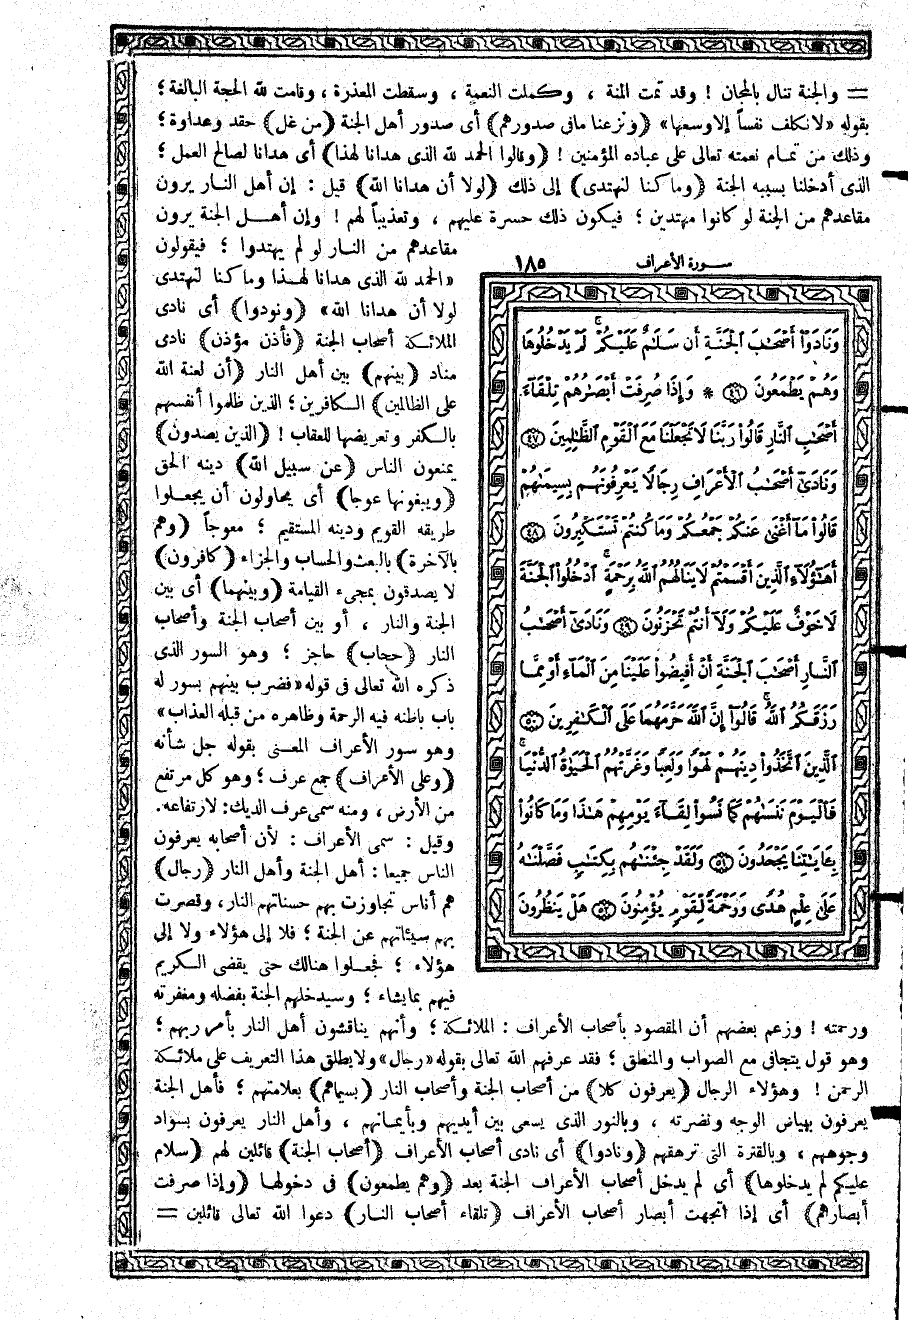 = والجنة تنال بالمجان ! وقد تمت المنة ، وكملت النعمة ، وسقطت المعذرة ، وقامت لله الحجة البالغة ؛
بقوله «لانكلف نفساً إلا وسعها» (ونزعنا مافى صدورهم) أى صدور أهل الجنة (من غل) حقد وعداوة ؛
وذلك من تمام نعمته تعالى على عباده المؤمنين ! (وقالوا الحمد لله الذى هدانا لهذا) أى هدانا لصالح العمل ؛
الذى أدخلنا بسببه الجنة (وما كنا لنهتدى) إلى ذلك (لولا أن هدانا الله) قيل : إن أهل النار يرون
مقاعدهم من الجنة لو كانوا مهتدين ؛ فيكون ذلك حسرة عليهم ، وتعذيباً لهم ! وإن أهل الجنة يرون
مقاعدهم من النار لو لم يهتدوا ؛ فيقولون
«الحمد لله الذى هدانا لهذا وما كنا لنهتدى
لولا أن هدانا الله» (ونودوا) أى نادى
الملائكة أصحاب الجنة (فأذن مؤذن) نادى
مناد (بينهم) بين أهل النار (أن لعنة الله
على الظالمين) الكافرين ؛ الذين ظلموا أنفسهم
بالكفر وتعريضها للعقاب ! (الذين يصدون)
يمنعون الناس (عن سبيل الله) دينه الحق
(ويبغونها عوجا) أى يحاولون أن يجعلوا
طريقه القويم ودينه المستقيم ؛ معوجاً (وهم
بالآخرة) بالبعث والحساب والجزاء (كافرون)
لا يصدقون بمجىء القيامة (وبينهما) أى بين
الجنة والنار ، أو بين أصحاب الجنة وأصحاب
النار (حجاب) حاجز ؛ وهو السور الذى
ذكره الله تعالى فى قوله «فضرب بينهم بسور له
باب باطنه فيه الرحمة وظاهره من قبله العذاب»
وهو سور الأعراف المعنى بقوله جل شأنه
(وعلى الأعراف) جمع عرف ؛ وهو كل مرتفع
من الأرض ، ومنه سمى عرف الديك : لارتفاعه .
وقيل : سمى الأعراف : لأن أصحابه يعرفون
الناس جميعا : أهل الجنة وأهل النار (رجال)
هم أناس تجاوزت بهم حسناتهم النار ، وقصرت
بهم سيئاتهم عن الجنة ؛ فلا إلى هؤلاء ولا إلى
هؤلاء ؛ فجعلوا هنالك حتى يقضى الكريم
فيهم بما يشاء ؛ وسيدخلهم الجنة بفضله ومغفرته
سورة الأعراف ١٨٥
وَنَادَوْا۟ أَصْحَٰبَ ٱلْجَنَّةِ أَن سَلَٰمٌ عَلَيْكُمْ ۚ لَمْ يَدْخُلُوهَا
وَهُمْ يَطْمَعُونَ ٤٦ * وَإِذَا صُرِفَتْ أَبْصَٰرُهُمْ تِلْقَآءَ
أَصْحَٰبِ ٱلنَّارِ قَالُوا۟ رَبَّنَا لَا تَجْعَلْنَا مَعَ ٱلْقَوْمِ ٱلظَّٰلِمِينَ ٤٧
وَنَادَىٰٓ أَصْحَٰبُ ٱلْأَعْرَافِ رِجَالًا يَعْرِفُونَهُم بِسِيمَىٰهُمْ
قَالُوا۟ مَآ أَغْنَىٰ عَنكُمْ جَمْعُكُمْ وَمَا كُنتُمْ تَسْتَكْبِرُونَ ٤٨
أَهَٰٓؤُلَآءِ ٱلَّذِينَ أَقْسَمْتُمْ لَا يَنَالُهُمُ ٱللَّهُ بِرَحْمَةٍ ۚ ٱدْخُلُوا۟ ٱلْجَنَّةَ
لَا خَوْفٌ عَلَيْكُمْ وَلَآ أَنتُمْ تَحْزَنُونَ ٤٩ وَنَادَىٰٓ أَصْحَٰبُ
ٱلنَّارِ أَصْحَٰبَ ٱلْجَنَّةِ أَنْ أَفِيضُوا۟ عَلَيْنَا مِنَ ٱلْمَآءِ أَوْ مِمَّا
رَزَقَكُمُ ٱللَّهُ ۚ قَالُوٓا۟ إِنَّ ٱللَّهَ حَرَّمَهُمَا عَلَى ٱلْكَٰفِرِينَ ٥٠
ٱلَّذِينَ ٱتَّخَذُوا۟ دِينَهُمْ لَهْوًا وَلَعِبًا وَغَرَّتْهُمُ ٱلْحَيَوٰةُ ٱلدُّنْيَا ۚ
فَٱلْيَوْمَ نَنسَىٰهُمْ كَمَا نَسُوا۟ لِقَآءَ يَوْمِهِمْ هَٰذَا وَمَا كَانُوا۟
بِـَٔايَٰتِنَا يَجْحَدُونَ ٥١ وَلَقَدْ جِئْنَٰهُم بِكِتَٰبٍ فَصَّلْنَٰهُ
عَلَىٰ عِلْمٍ هُدًى وَرَحْمَةً لِّقَوْمٍ يُؤْمِنُونَ ٥٢ هَلْ يَنظُرُونَ
ورحمته ! وزعم بعضهم أن المقصود بأصحاب الأعراف : الملائكة ؛ وأنهم يناقشون أهل النار بأمر ربهم ؛
وهو قول يتجافى مع الصواب والمنطق ؛ فقد عرفهم الله تعالى بقوله «رجال» ولايطلق هذا التعريف على ملائكة
الرحمن ! وهؤلاء الرجال (يعرفون كلا) من أصحاب الجنة وأصحاب النار (بسيماهم) بعلامتهم ؛ فأهل الجنة
يعرفون بهياض الوجه ونضرته ، وبالنور الذى يسعى بين أيديهم وبأيمانهم ، وأهل النار يعرفون بسواد
وجوههم ، وبالقترة التى ترهقهم (ونادوا) أى نادى أصحاب الأعراف (أصحاب الجنة) قائلين لهم (سلام
عليكم لم يدخلوها) أى لم يدخل أصحاب الأعراف الجنة بعد (وهم يطمعون) فى دخولها (وإذا صرفت
أبصارهم) أى إذا اتجهت أبصار أصحاب الأعراف (تلقاء أصحاب النار) دعوا الله تعالى قائلين =